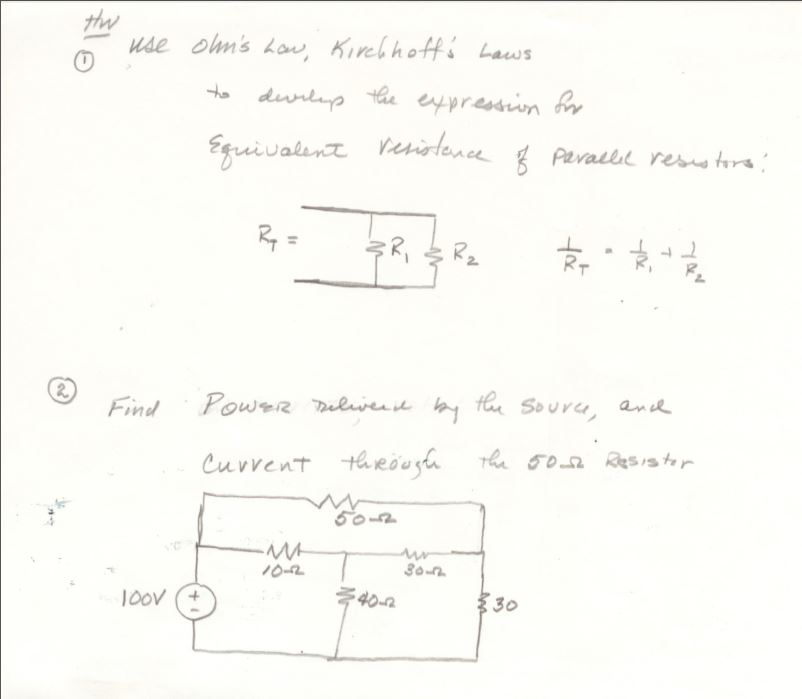 HW
① Use Ohm's Law, Kirchhoff's Laws
to develop the expression for
Equivalent resistance of parallel resistors:
R_T = R_1 R_2 1/R_T = 1/R_1 + 1/R_2
② Find Power Delivered by the source, and
Current through the 50-Ω Resistor
50-Ω
10-Ω 30-Ω
100V + - 40-Ω 30